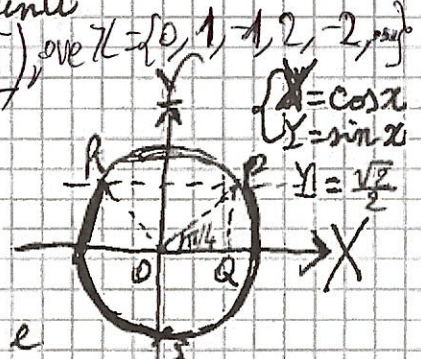 ove Z={0, 1, -1, 2, -2, ...}
Y
X=cosx
Y=sinx
R P Y=√2/2
π/4
O Q X
e